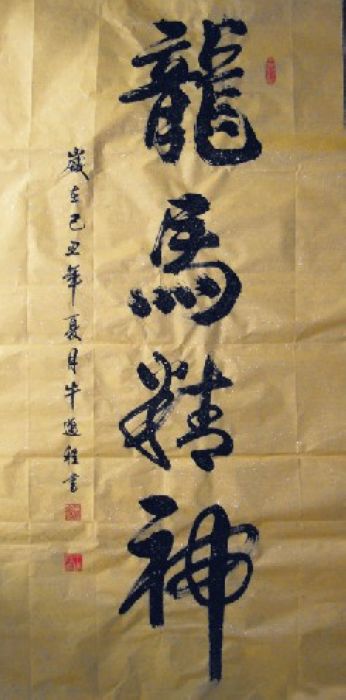 龍馬精神
歲在己丑年夏月牛遂程書